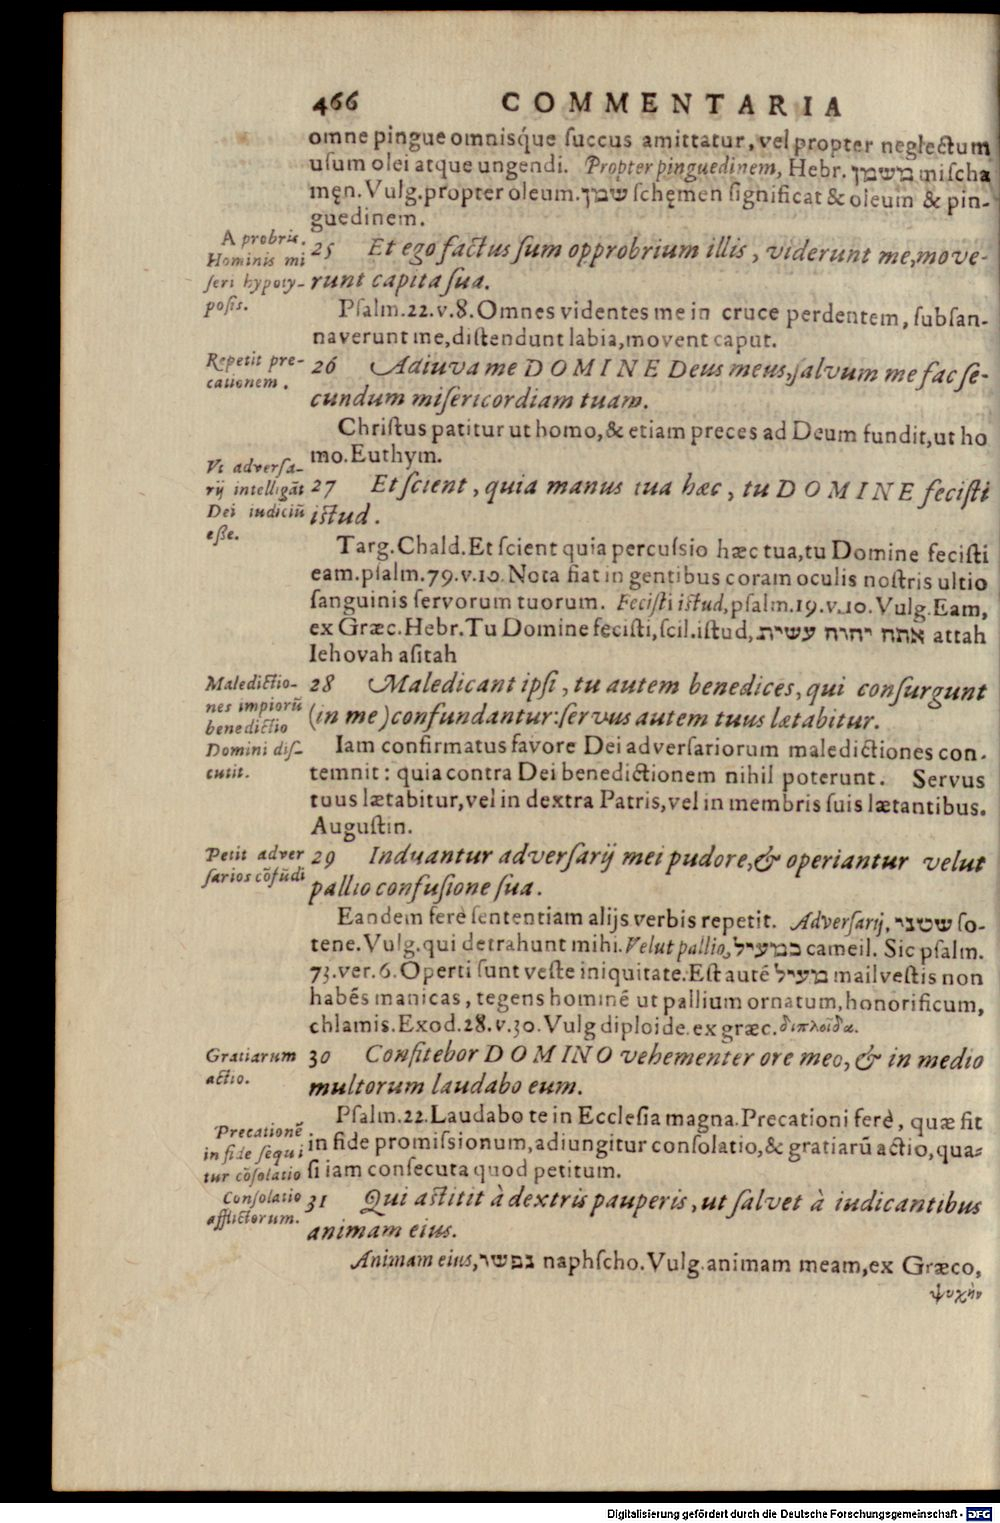 466 COMMENTARIA
omne pingue omnisq́ue ſuccus amittatur, vel propter neglectum
uſum olei atque ungendi. Propter pinguedinem, Hebr. משמן miſcha
męn. Vulg. propter oleum. שמן ſchęmen ſignificat & oleum & pin-
guedinem.
A probris.
Hominis mi
ſeri hypoty-
poſis.
25 Et ego factus ſum opprobrium illis, viderunt me, move-
runt capita ſua.
Pſalm. 22. v. 8. Omnes videntes me in cruce perdentem, ſubſan-
naverunt me, diſtendunt labia, movent caput.
Repetit pre-
cationem.
26 Adiuva me DOMINE Deus meus, ſalvum me fac ſe-
cundum miſericordiam tuam.
Chriſtus patitur ut homo, & etiam preces ad Deum fundit, ut ho
mo. Euthym.
Vt adverſa-
rij intelligãt
Dei iudiciũ
eſſe.
27 Et ſcient, quia manus tua hæc, tu DOMINE feciſti
iſtud.
Targ. Chald. Et ſcient quia percuſsio hæc tua, tu Domine feciſti
eam. pſalm. 79. v. 10. Nota fiat in gentibus coram oculis noſtris ultio
ſanguinis ſervorum tuorum. Feciſti iſtud, pſalm. 19. v. 10. Vulg. Eam,
ex Græc. Hebr. Tu Domine feciſti, ſcil. iſtud, אתה יהוה עשית attah
Iehovah aſitah
Maledictio-
nes impiorũ
benedictio
Domini diſ-
cutit.
28 Maledicant ipſi, tu autem benedices, qui conſurgunt
(in me) confundantur: ſervus autem tuus lætabitur.
Iam confirmatus favore Dei adverſariorum maledictiones con-
temnit: quia contra Dei benedictionem nihil poterunt. Servus
tuus lætabitur, vel in dextra Patris, vel in membris ſuis lætantibus.
Auguſtin.
Petit adver
ſarios cõfũdi
29 Induantur adverſarij mei pudore, & operiantur velut
pallio confuſione ſua.
Eandem ferè ſententiam alijs verbis repetit. Adverſarij, שטני ſo-
tene. Vulg. qui detrahunt mihi. Velut pallio, כמעיל cameil. Sic pſalm.
73. ver. 6. Operti ſunt veſte iniquitate. Eſt autẽ מעיל mail veſtis non
habẽs manicas, tegens hominẽ ut pallium ornatum, honorificum,
chlamis. Exod. 28. v. 30. Vulg diploide. ex græc. διπλοΐδα.
Gratiarum
actio.
30 Confitebor DOMINO vehementer ore meo, & in medio
multorum laudabo eum.
Precationẽ
in fide ſequi
tur cõſolatio
Pſalm. 22. Laudabo te in Eccleſia magna. Precationi ferè, quæ fit
in fide promiſsionum, adiungitur conſolatio, & gratiarũ actio, qua-
ſi iam conſecuta quod petitum.
Conſolatio
afflictorum.
31 Qui aſtitit à dextris pauperis, ut ſalvet à iudicantibus
animam eius.
Animam eius, נפשו naphſcho. Vulg. animam meam, ex Græco,
ψυχὴν
Digitalisierung gefördert durch die Deutsche Forschungsgemeinschaft - DFG